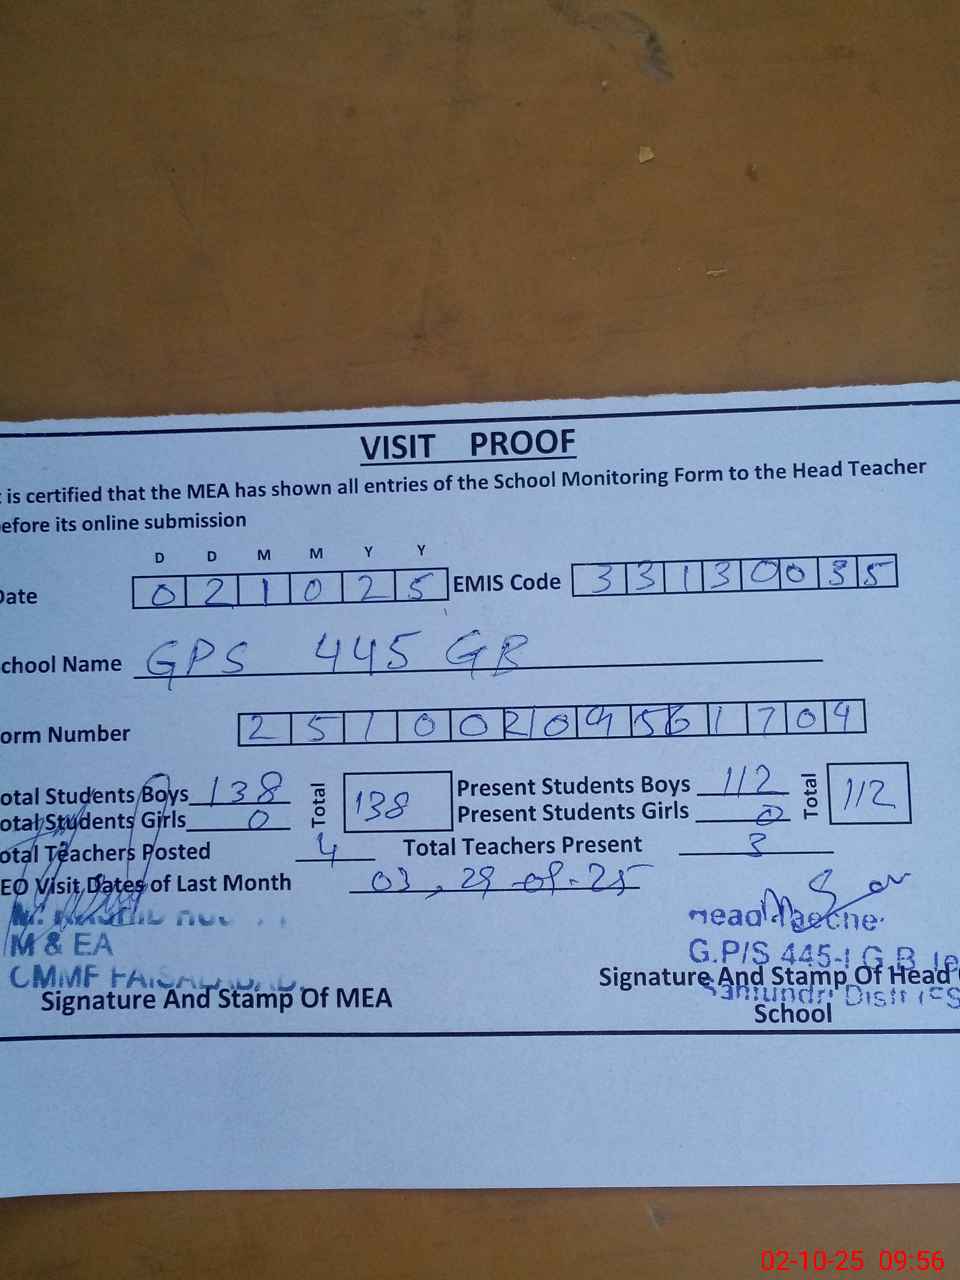 VISIT PROOF
is certified that the MEA has shown all entries of the School Monitoring Form to the Head Teacher
efore its online submission
D D M M Y Y
Date 0 2 1 0 2 5 EMIS Code 3 3 1 3 0 0 3 5
chool Name GPS 445 GB
orm Number 2 5 1 0 0 2 0 9 5 6 1 7 0 4
otal Students Boys 138 Total 138 Present Students Boys 112 Total 112
otal Students Girls 0 Present Students Girls 0
otal Teachers Posted 4 Total Teachers Present 3
EO Visit Dates of Last Month 03, 29-09-25
M & EA
CMMF
G.P/S 445- G.B
Signature And Stamp Of MEA Signature And Stamp Of Head
School
02-10-25 09:56